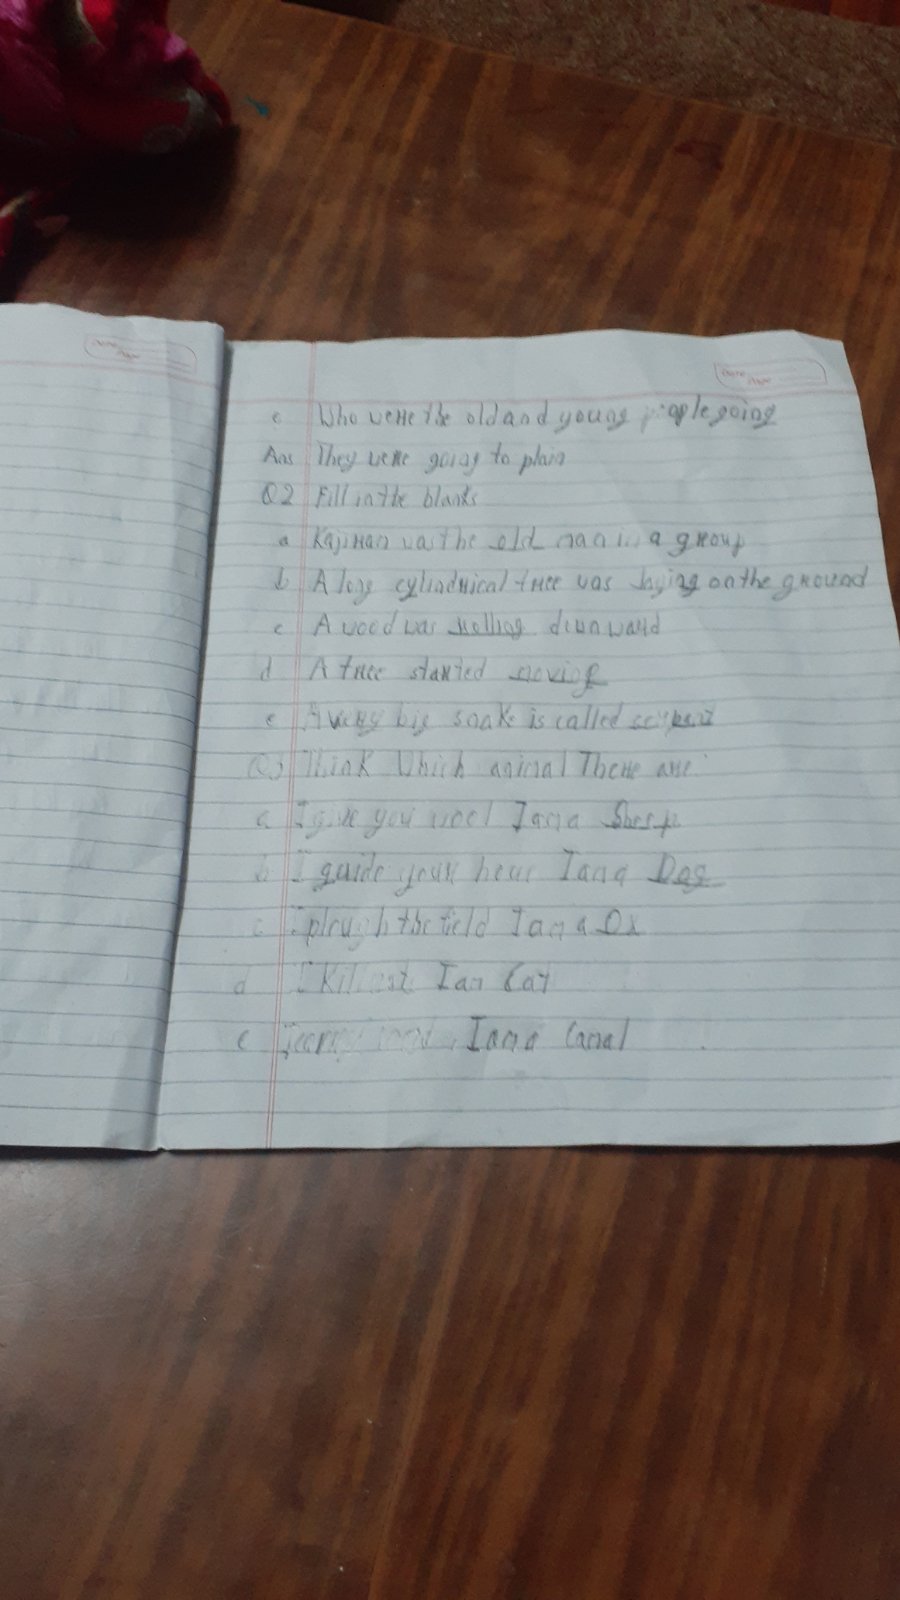 Date
Page
Date
Page
e Who were the old and young people going
Ans They were going to plain
Q2 Fill in the blanks
a Kajiman was the old man in a group
b A long cylindrical tree was laying on the ground
c A wood was rolling downward
d A tree started moving
e A very big snake is called
Q3 Think Which animal There are
a I give you wool I am a Sheep
b I guide your I am a Dog
c I plough the field I am a Ox
d I Kill I am Cat
e I am a Camal